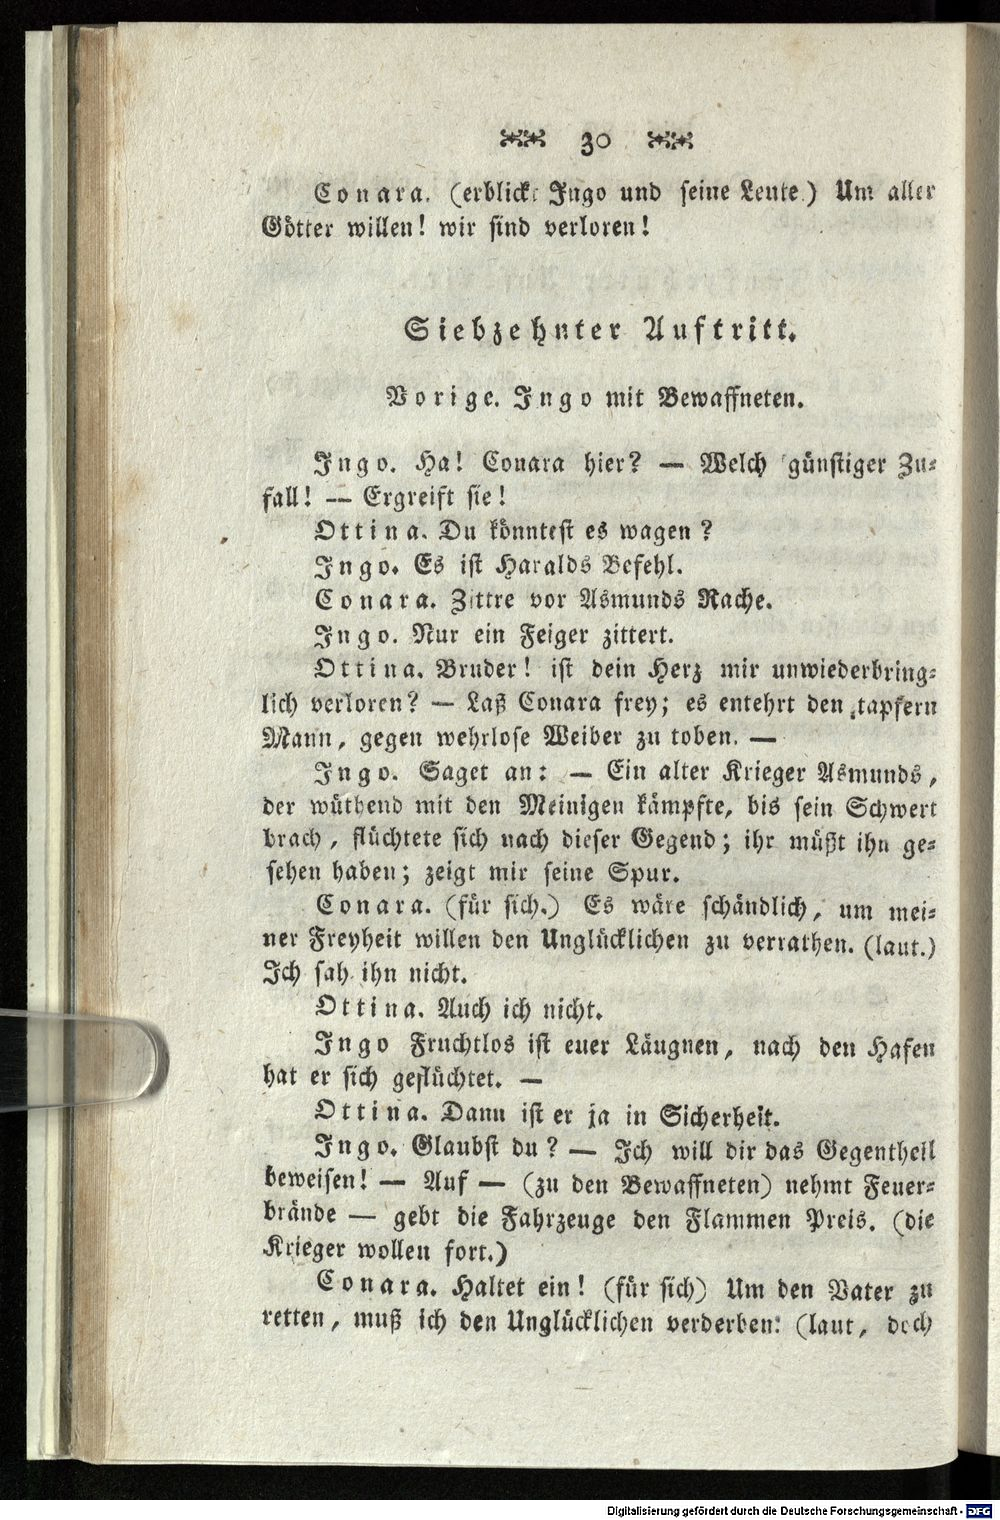 30
Conara. (erblickt Ingo und seine Leute.) Um aller
Götter willen! wir sind verloren!
Siebzehnter Auftritt.
Vorige. Ingo mit Bewaffneten.
Ingo. Ha! Conara hier? — Welch günstiger Zu-
fall! — Ergreift sie!
Ottina. Du könntest es wagen?
Ingo. Es ist Haralds Befehl.
Conara. Zittre vor Asmunds Rache.
Ingo. Nur ein Feiger zittert.
Ottina. Bruder! ist dein Herz mir unwiederbring-
lich verloren? — Laß Conara frey; es entehrt den tapfern
Mann, gegen wehrlose Weiber zu toben. —
Ingo. Saget an: — Ein alter Krieger Asmunds,
der wüthend mit den Meinigen kämpfte, bis sein Schwert
brach, flüchtete sich nach dieser Gegend; ihr müßt ihn ge-
sehen haben; zeigt mir seine Spur.
Conara. (für sich.) Es wäre schändlich, um mei-
ner Freyheit willen den Unglücklichen zu verrathen. (laut.)
Ich sah ihn nicht.
Ottina. Auch ich nicht.
Ingo Fruchtlos ist euer Läugnen, nach den Hafen
hat er sich geflüchtet. —
Ottina. Dann ist er ja in Sicherheit.
Ingo. Glaubst du? — Ich will dir das Gegentheil
beweisen! — Auf — (zu den Bewaffneten) nehmt Feuer-
brände — gebt die Fahrzeuge den Flammen Preis. (die
Krieger wollen fort.)
Conara. Haltet ein! (für sich) Um den Vater zu
retten, muß ich den Unglücklichen verderben: (laut, doch
Digitalisierung gefördert durch die Deutsche Forschungsgemeinschaft - DFG